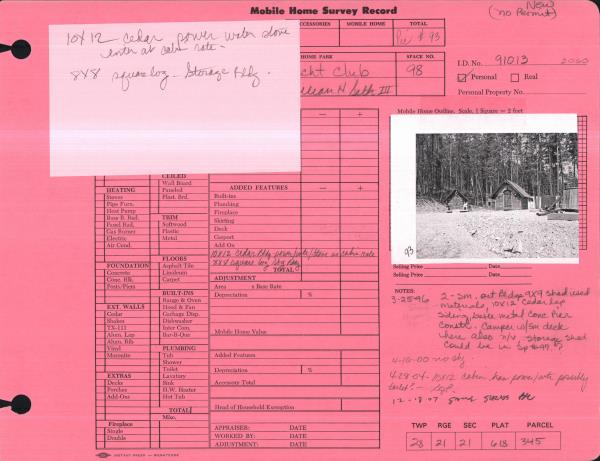 Mobile Home Survey Record
New
(no Permit)
10x12 cedar power water stove
enter at cabin rate -
8x8 square log - Storage Bldg.
ACCESSORIES
MOBILE HOME
TOTAL
93
HOME PARK
SPACE NO.
Yacht Club
98
I.D. No. 91013
2000
Personal
Real
Personal Property No.
Mobile Home Outline, Scale, 1 Square = 2 feet
CEILED
Wall Board
Paneled
Plast. Brd.
HEATING
Stoves
Pipe Furn.
Heat Pump
Base B. Rad.
Panel Rad.
Gas Burner
Electric
Air Cond.
TRIM
Softwood
Plastic
Metal
FLOORS
Asphalt Tile
Linoleum
Carpet
FOUNDATION
Concrete
Conc. Blk.
Posts/Piers
BUILT-INS
Range & Oven
Hood & Fan
Garbage Disp.
Dishwasher
Inter Com.
Bar-B-Que
EXT. WALLS
Cedar
Shakes
TX-111
Alum. Lap
Alum. Rib
Vinyl
Masonite
PLUMBING
Tub
Shower
Toilet
Lavatory
Sink
H.W. Heater
Hot Tub
EXTRAS
Decks
Porches
Add-Ons
TOTAL
Misc.
Fireplace
Single
Double
ADDED FEATURES
Built-ins
Plumbing
Fireplace
Skirting
Deck
Carport
Add On
10x12 Cedar Bldg power/water/stove in cabin rate
8x8 square log Stg Bldg
TOTAL
ADJUSTMENT
Area
x Base Rate
Depreciation
%
Mobile Home Value
Added Features
Depreciation
%
Accessory Total
Head of Household Exemption
APPRAISER:
DATE
WORKED BY:
DATE
ADJUSTMENT:
DATE
93
Selling Price
Date
Selling Price
Date
NOTES:
3-25-96
2-Sm. out Bldgs 9x9 Shed used
materials, 10x12 Cedar Lap
Siding base metal Conc Pier
Constr. Camper w/Sm deck
here also n/v Storage Shed
Could be in Sp #99?
4-10-00 no chg
4-28-04 10x12 cabin has power/water possibly
toilet? -
12-18-07
TWP
RGE
SEC
PLAT
PARCEL
23
21
21
618
345